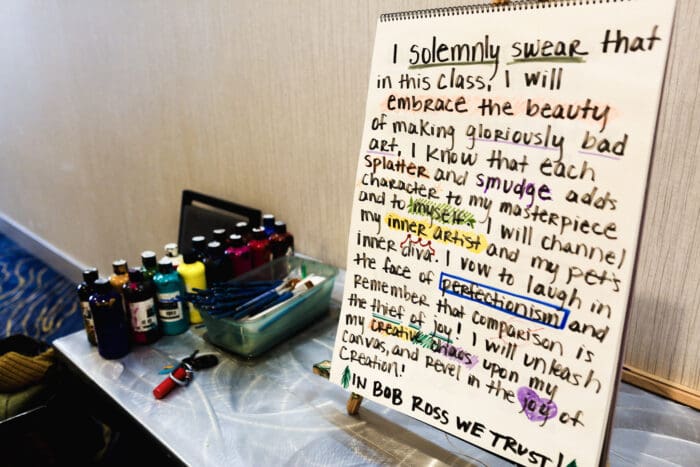 I solemnly swear that
in this class, I will
embrace the beauty
of making gloriously bad
art, I know that each
splatter and smudge adds
character to my masterpiece
and to myself. I will channel
my inner artist and my pet's
inner diva. I vow to laugh in
the face of perfectionism and
Remember that comparison is
the thief of joy! I will unleash
my creative chaos upon my
canvas, and revel in the joy of
Creation!
IN BOB ROSS WE TRUST!